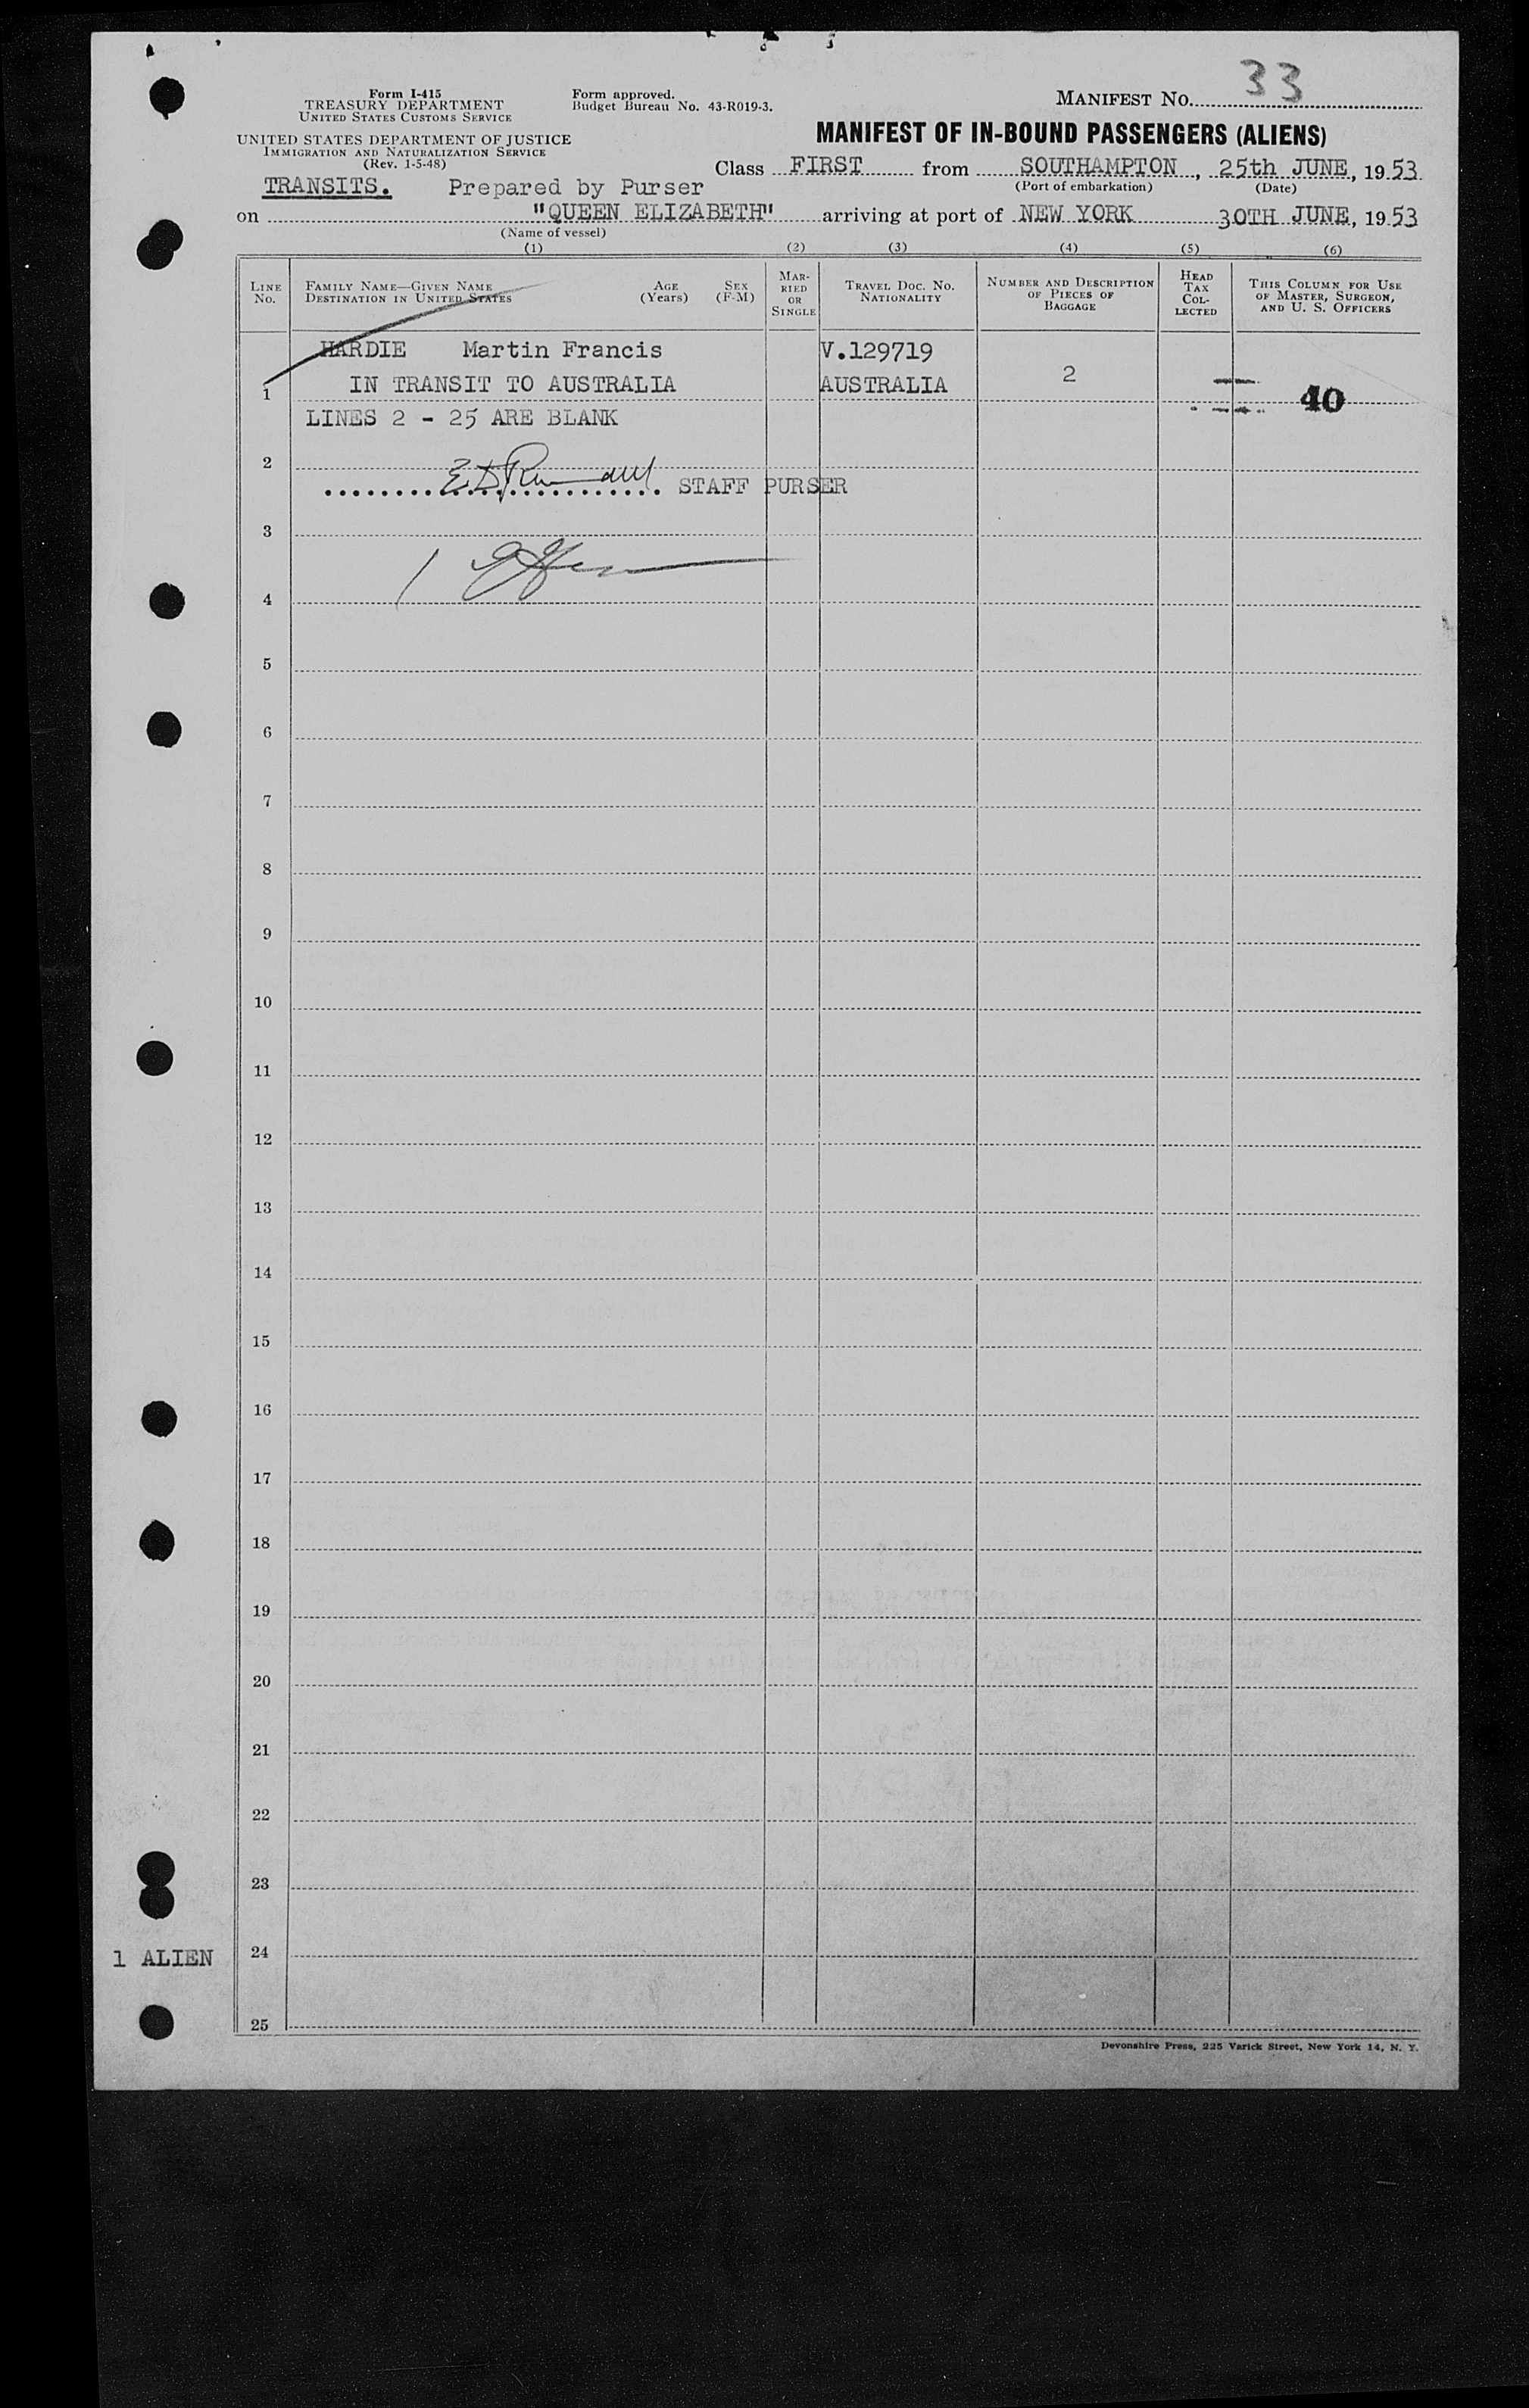 33
Form I-415
TREASURY DEPARTMENT
UNITED STATES CUSTOMS SERVICE
Form approved.
Budget Bureau No. 43-R019-3.
MANIFEST No.
UNITED STATES DEPARTMENT OF JUSTICE
IMMIGRATION AND NATURALIZATION SERVICE
(Rev. 1-5-48)
MANIFEST OF IN-BOUND PASSENGERS (ALIENS)
Class FIRST from SOUTHAMPTON, 25th JUNE, 1953
(Port of embarkation) (Date)
TRANSITS. Prepared by Purser
on "QUEEN ELIZABETH" arriving at port of NEW YORK 30TH JUNE, 1953
(Name of vessel)
(1) (2) (3) (4) (5) (6)
LINE No.
FAMILY NAME—GIVEN NAME
DESTINATION IN UNITED STATES
AGE (Years)
SEX (F-M)
MARRIED OR SINGLE
TRAVEL DOC. NO.
NATIONALITY
NUMBER AND DESCRIPTION
OF PIECES OF
BAGGAGE
HEAD
TAX
COL-
LECTED
THIS COLUMN FOR USE
OF MASTER, SURGEON,
AND U. S. OFFICERS
HARDIE Martin Francis V.129719
1 IN TRANSIT TO AUSTRALIA AUSTRALIA 2 40
LINES 2 - 25 ARE BLANK
2
STAFF PURSER
3
4
5
6
7
8
9
10
11
12
13
14
15
16
17
18
19
20
21
22
23
1 ALIEN 24
25
Devonshire Press, 225 Varick Street, New York 14, N. Y.